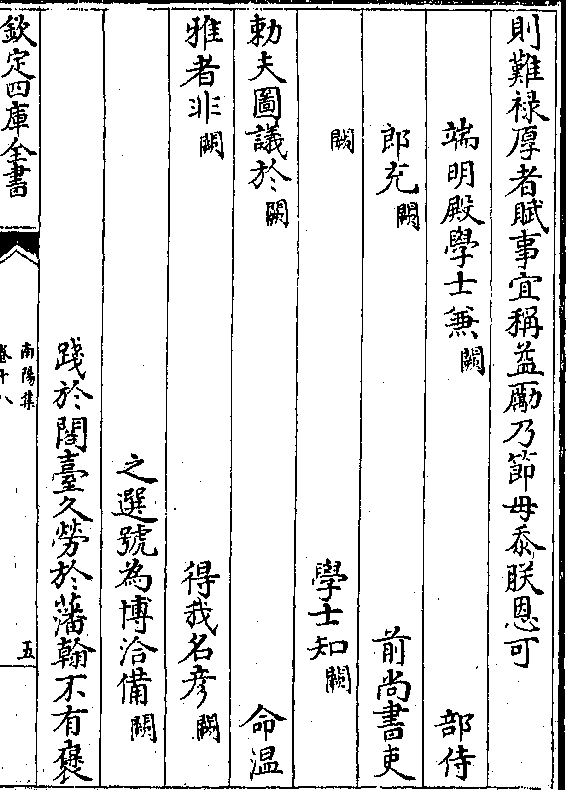 則難禄厚者賦事宜稱益勵乃節毋忝朕恩可
端明殿學士兼闕 部侍
郎充闕 前尚書吏
闕 學士知闕
勅夫圖議於闕 命温
雅者非闕 得我名彦闕
之選號為博洽備闕
踐於閣臺久勞於藩翰不有褒
欽定四庫全書
南陽集
卷十八
五